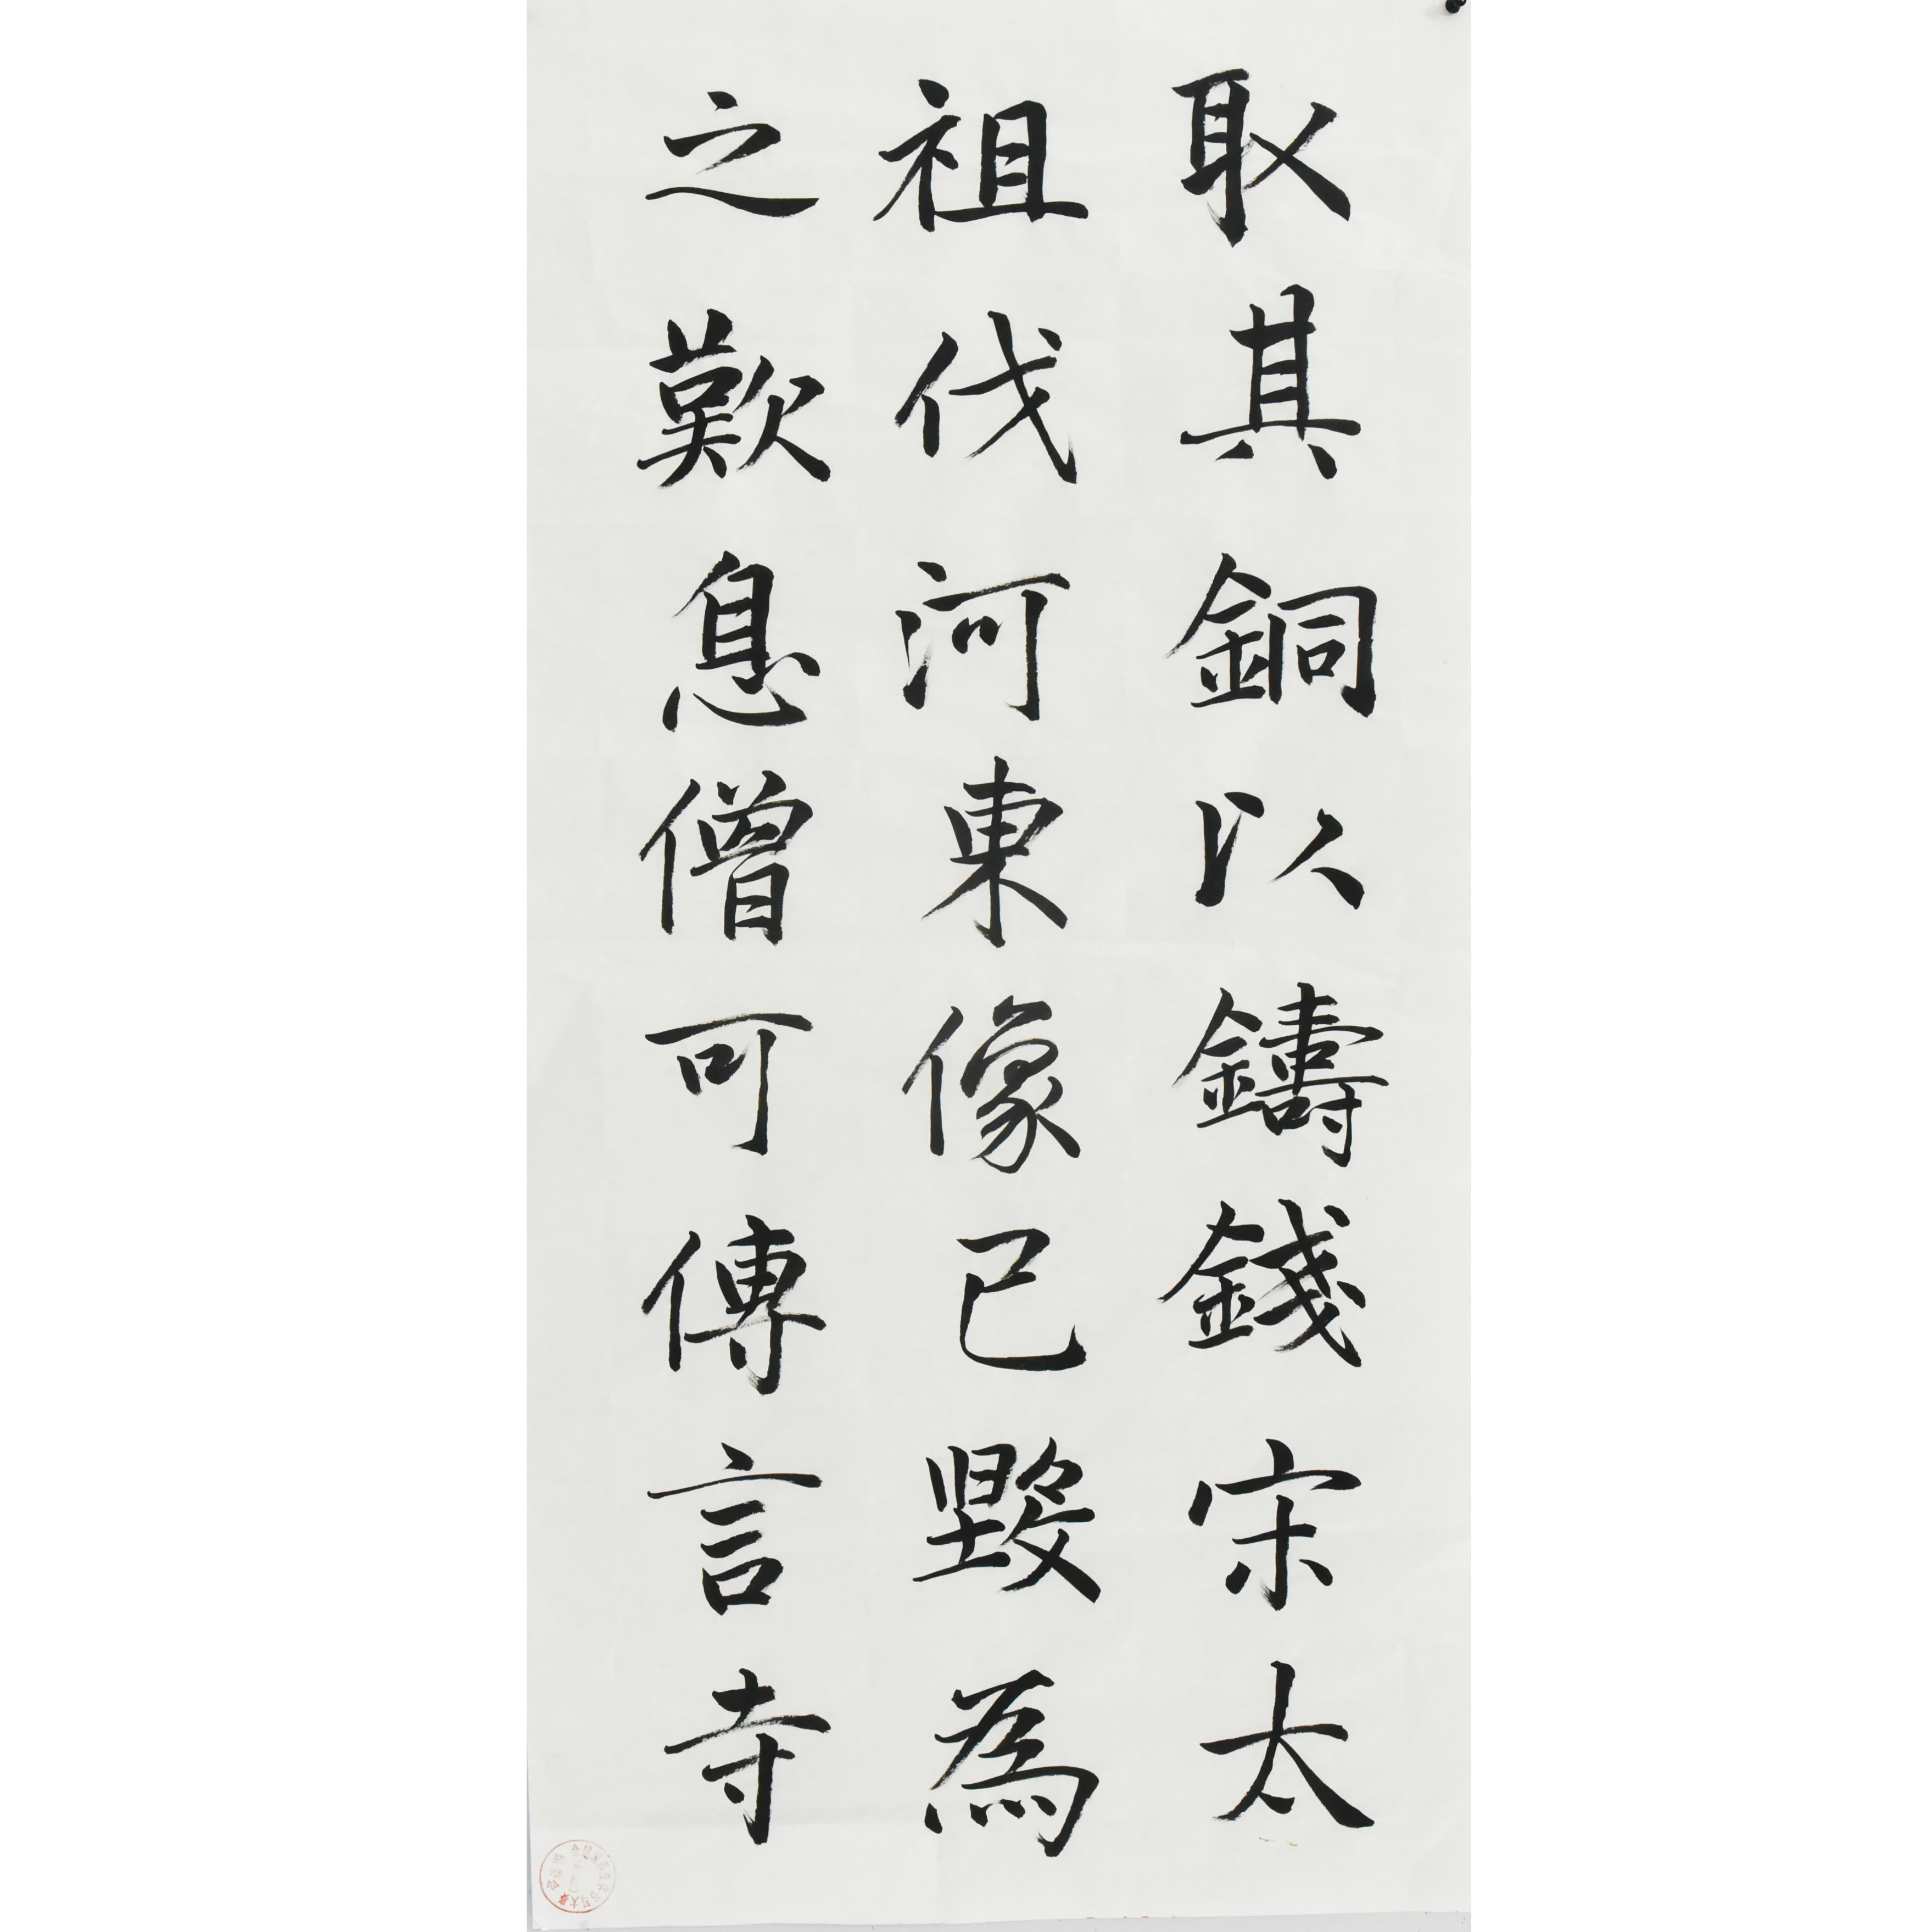 取其銅以鑄錢宋太
祖伐河東像已毀為
之歎息僧可傳言寺